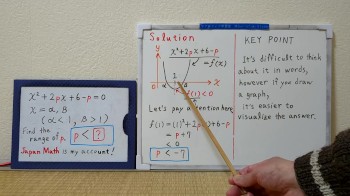 x²+2px+6-p=0
x=α,β
(α<1, β>1)
Find the
range of p.
p < ?
Japan Math is my account!
Solution
y
x²+2px+6-p
=f(x)
1
0
α
β
x
f(1)<0
Let's pay attention here.
f(1)=(1)²+2p(1)+6-p
=p+7
<0
p<-7
KEY POINT
It's difficult to think
about it in words,
however if you draw
a graph,
it's easier to
visualize the answer.